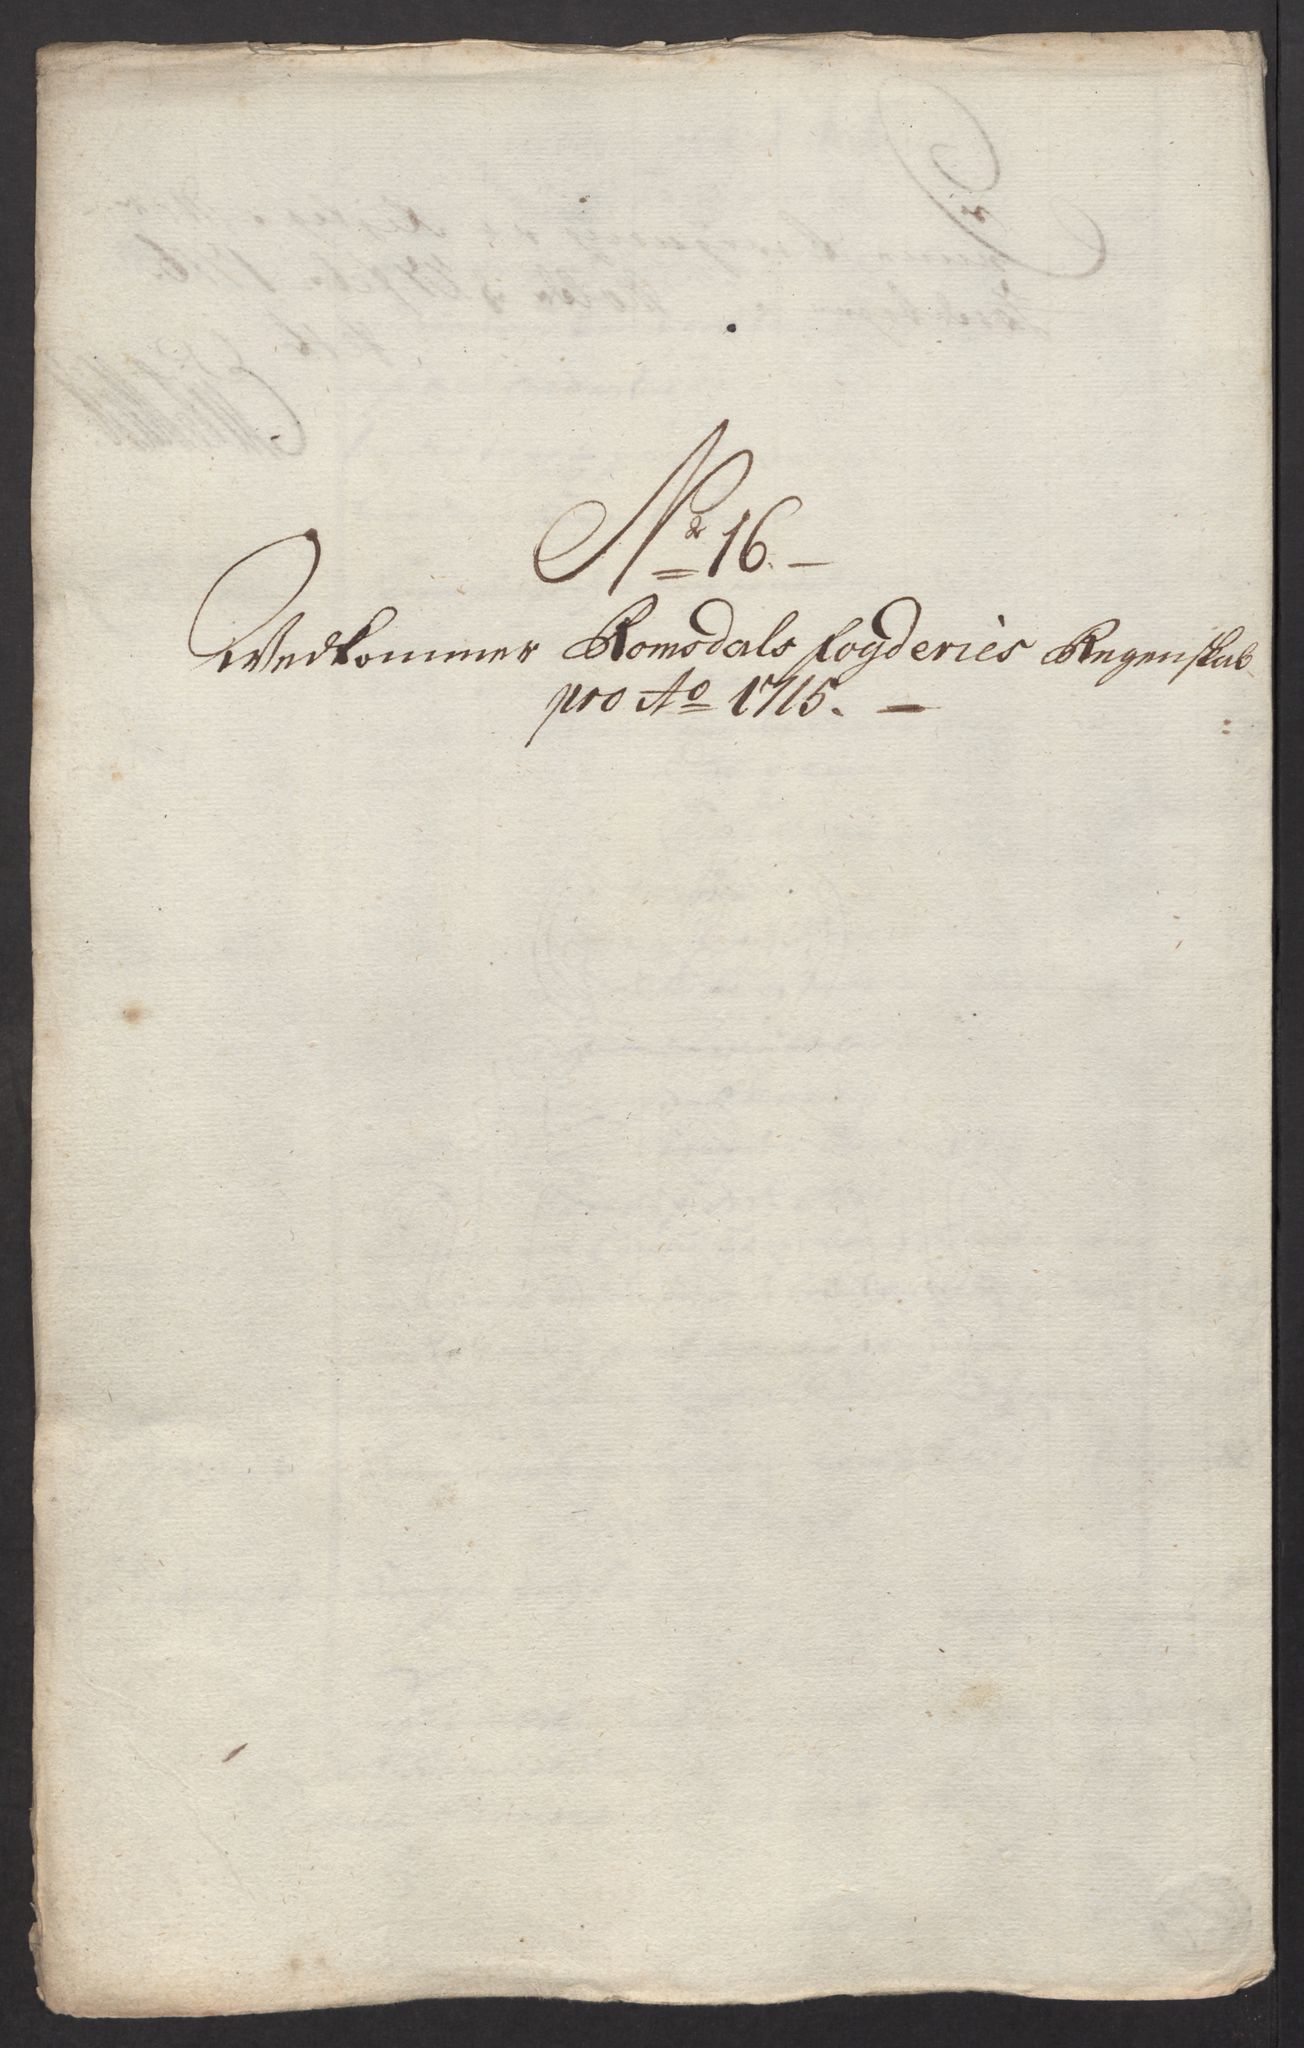 No 16. –
Vedkommer Romsdals fogderies Regenskab
pro Ao 1715. –